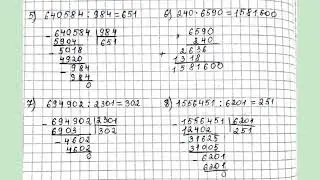 5) 640584 : 984 = 651
- 640584 | 984
5904 | 651
- 5018
4920
- 984
984
0
6) 240 · 6590 = 1581600
× 6590
240
+ 2636
1318
1581600
7) 694902 : 2301 = 302
- 694902 | 2301
6903 | 302
- 4602
4602
0
8) 1556451 : 6201 = 251
- 1556451 | 6201
12402 | 251
- 31625
31005
- 6201
6301
0